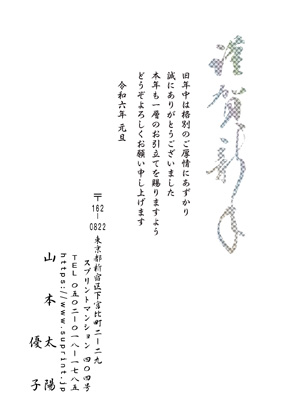 謹賀新年
旧年中は格別のご厚情にあずかり
誠にありがとうございました
本年も一層のお引立てを賜りますよう
どうぞよろしくお願い申し上げます
令和六年 元旦
〒162-0822
東京都新宿区下宮比町二-二九
スプリントマンション 四〇四号
TEL 〇五〇-二〇一八-一七八五
https://www.suprint.jp
山本 太陽
優子